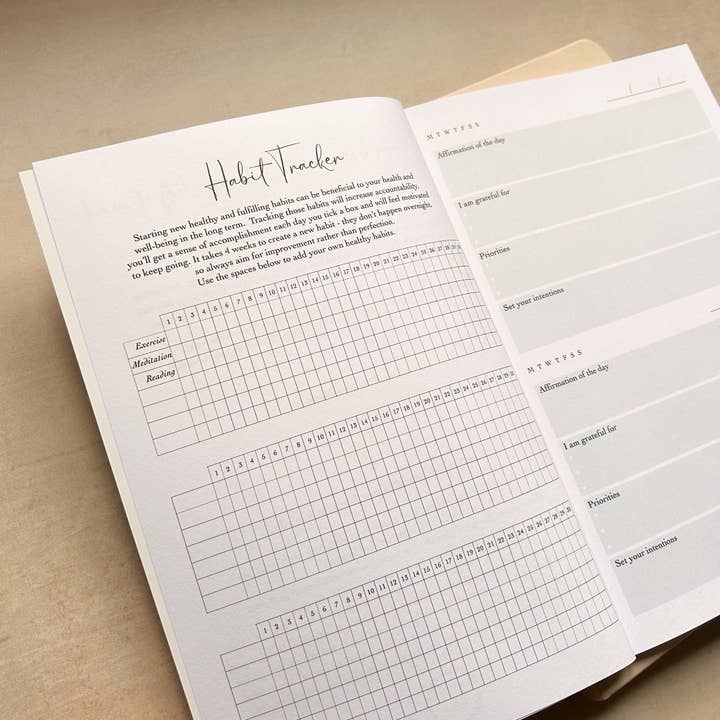 Habit Tracker
Starting new healthy and fulfilling habits can be beneficial to your health and
well-being in the long term. Tracking those habits will increase accountability,
you'll get a sense of accomplishment each day you tick a box and will feel motivated
to keep going. It takes 4 weeks to create a new habit - they don't happen overnight,
so always aim for improvement rather than perfection.
Use the spaces below to add your own healthy habits.
1 2 3 4 5 6 7 8 9 10 11 12 13 14 15 16 17 18 19 20 21 22 23 24 25 26 27 28 29
Exercise
Meditation
Reading
1 2 3 4 5 6 7 8 9 10 11 12 13 14 15 16 17 18 19 20 21 22 23 24 25 26 27 28 29
1 2 3 4 5 6 7 8 9 10 11 12 13 14 15 16 17 18 19 20 21 22 23 24 25 26 27 28 29 30
M T W T F S S
Affirmation of the day
I am grateful for
Priorities
Set your intentions
M T W T F S S
Affirmation of the day
I am grateful for
Priorities
Set your intentions